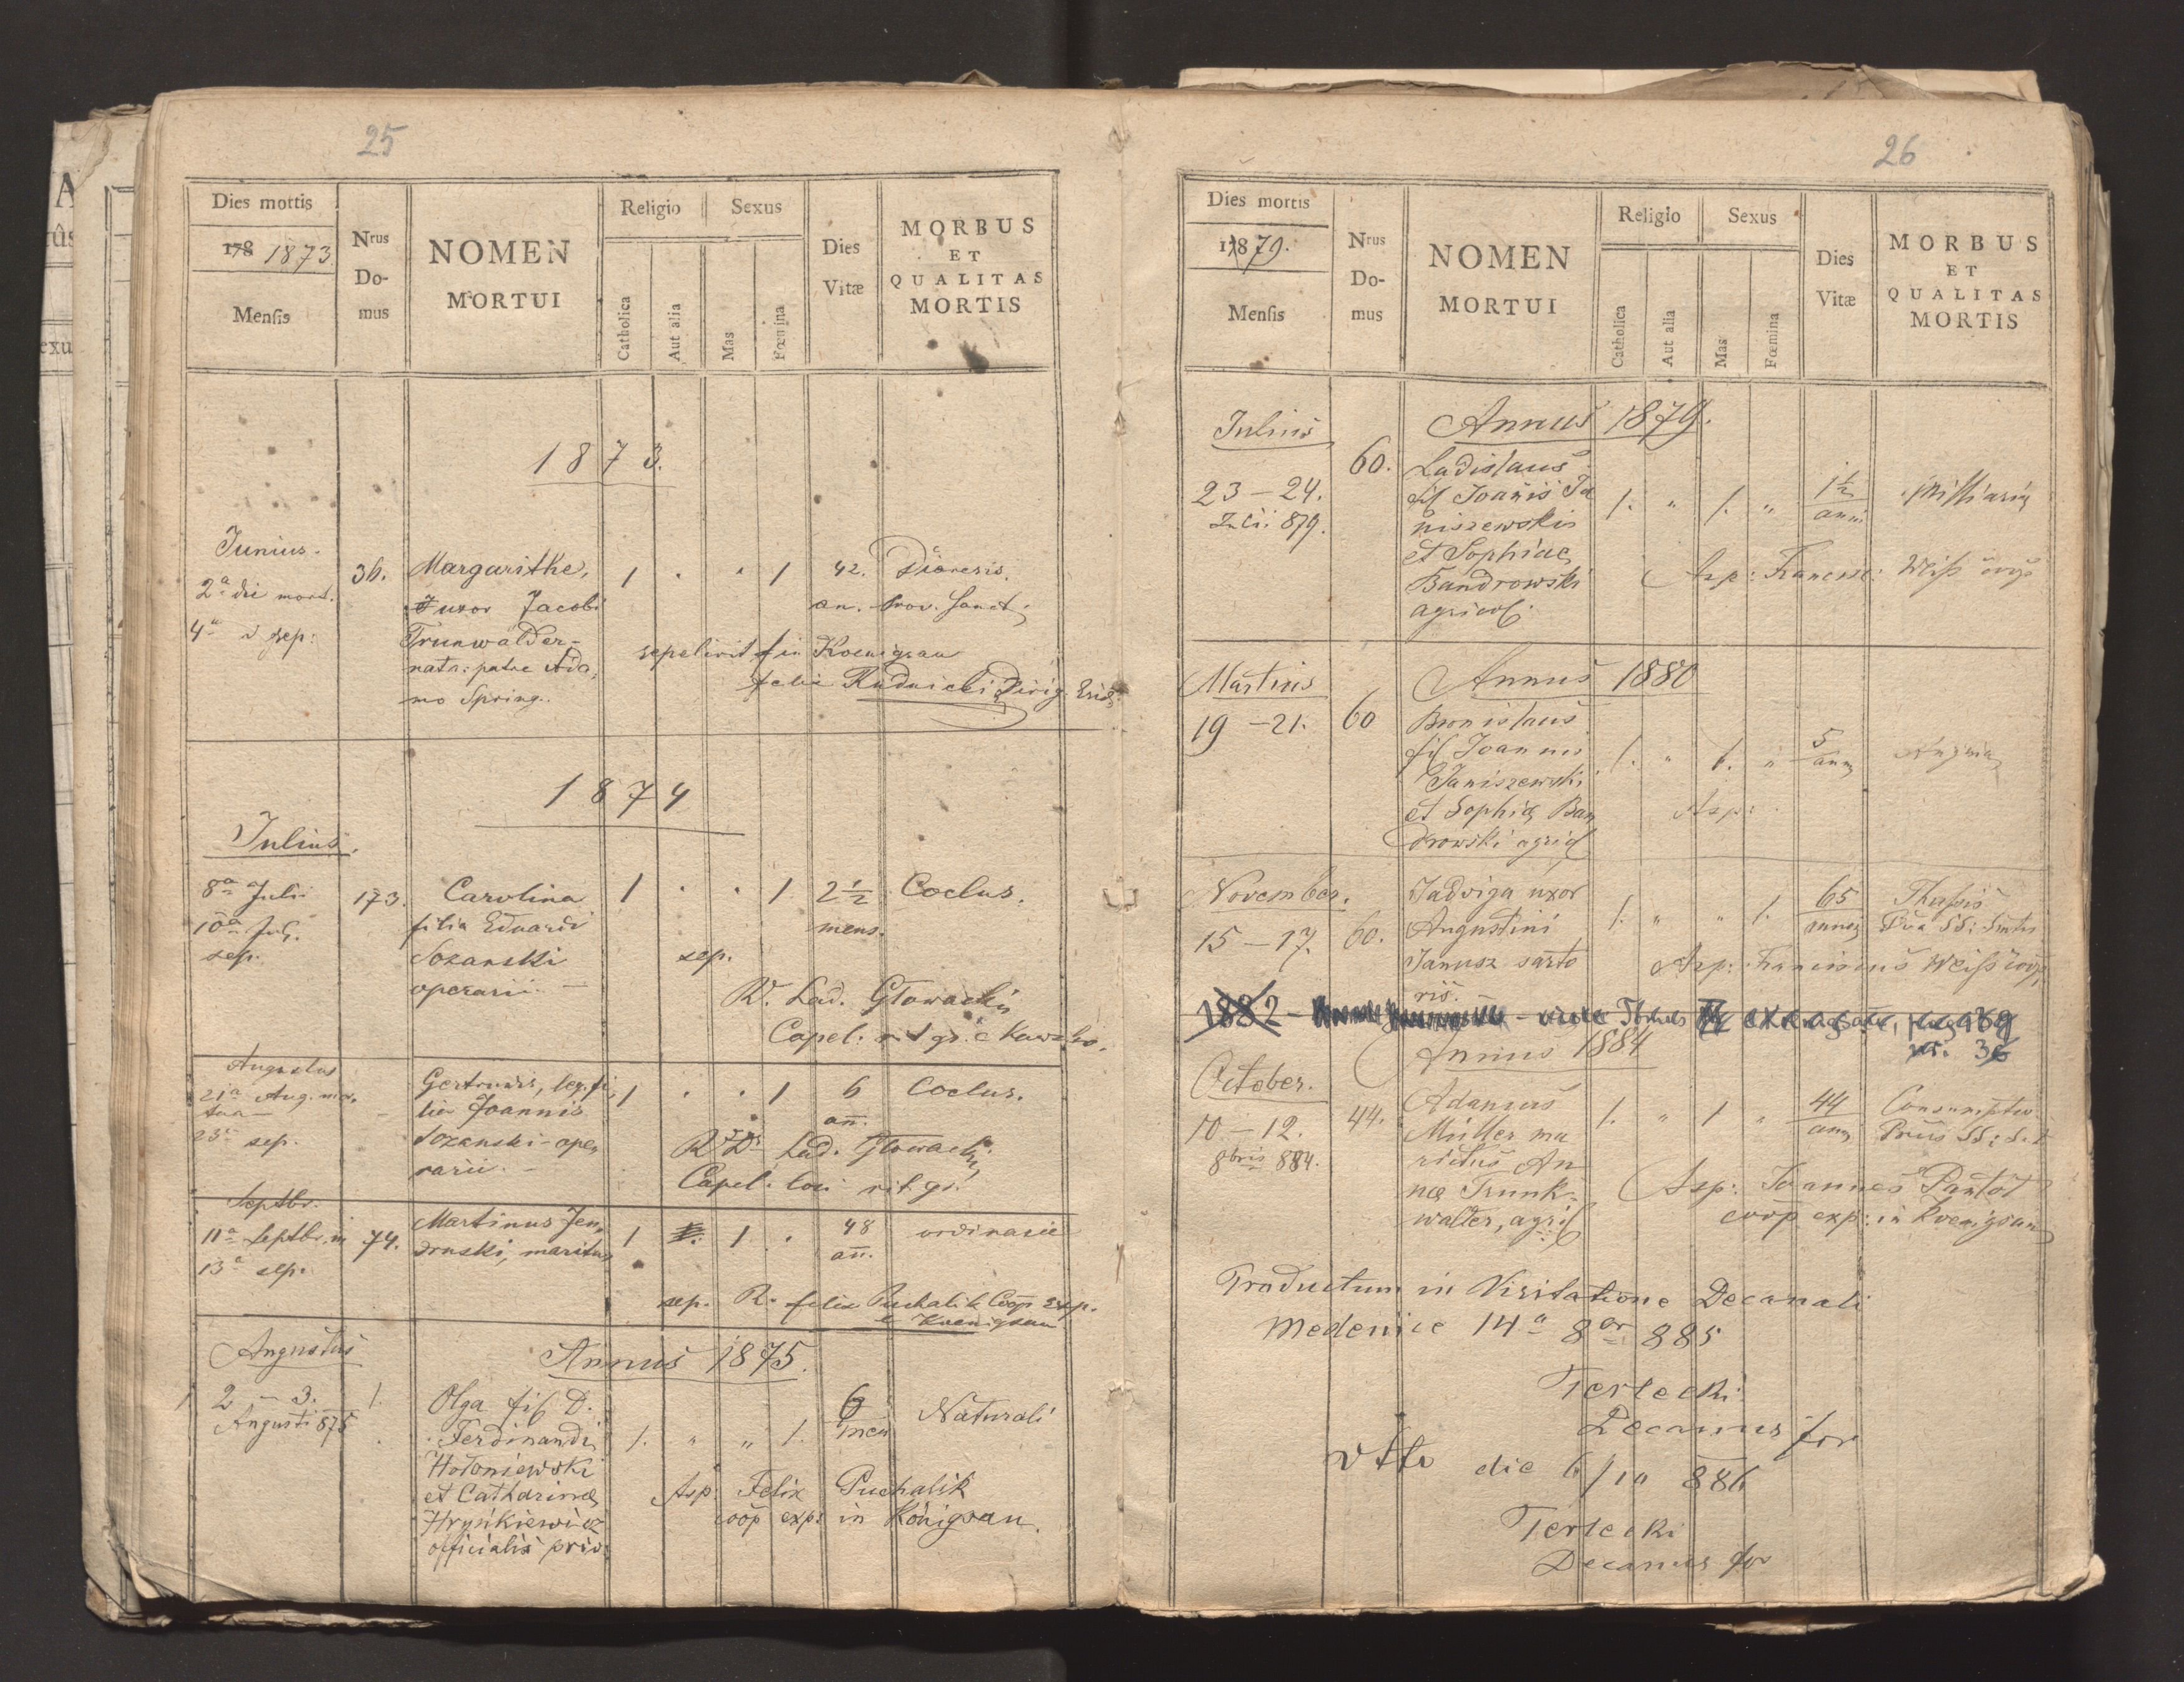 25
Dies mortis
178 1873
Mensis
Nrus
Do-
mus
NOMEN
MORTUI
Religio
Sexus
Catholica
Aut alia
Mas
Fœmina
Dies
Vitæ
MORBUS
ET
QUALITAS
MORTIS
1873.
Junius.
2a die mort.
4a d sep:
36.
Margarithe,
uxor Jacobi
Trunwalder
nata: patre Ada,
mo Spring.
1 " " 1
42.
an.
Diaresis.
prov. Sanct.
sepelivit in Koenigsau
Felix Rudnicki Dirig.
1874
Julius.
8a Julii
10a Juli.
sep.
173.
Carolina
filia Eduardi
Sozanski
operarii. —
1 . . 1
2 1/2
mens.
Coclus.
sep.
R. Lad. Głowacki
Capel. rit gr.
Augustus
21a Aug. mor.
tua —
23a sep.
–
Gertrudis, leg. fi,
lia Joannis
Sozanski - oper
rarii. —
1 . . 1
6
an̄.
Coclus.
R. D. Lad. Głowacki
Capel. loci rit gr.
Septbr.
11a Septbr. m
13a sep.
74.
Martinus Jen,
druski, maritus
1 1 .
48
an̄.
ordinarie
sep. R. Felix Puchalik Coop Exp.
e Koenigsau
Augustus
Annus 1875.
2 – 3.
Augusti 875
1.
Olga fil D.
Ferdinandi
Hołoniewski
et Catharinæ
Hryńkiewicz
officialis priv.
1. " " 1.
6
men
Naturali
Asp: Felix Puchalik
coop exp: in Königsau.
26
Dies mortis
1879.
Mensis
Nrus
Do-
mus
NOMEN
MORTUI
Religio
Sexus
Catholica
Aut alia
Mas
Fœmina
Dies
Vitæ
MORBUS
ET
QUALITAS
MORTIS
Julius
Annus 1879.
23 – 24.
Julii 879.
60.
Ladislaus
fil Joannis Ja
niszewskis
et Sophiae
Bandrowski
agricol.
1. " 1. "
1 1/2
anni
Asp: Francisc: Weiss
Martius
Annus 1880
19 – 21.
60
Bronislaus
fil Joannis
Janiszewski
et Sophiæ Ban
drowski agricol
1. " 1. "
5
ann
Angina
Asp:
November.
15 – 17.
60.
Jadviga uxor
Augustini
Janusz sarto
ris.
1. " " 1.
65
annis
Asp: Franciscus Weiss coop
1882
Annus 1884
October.
10 – 12.
8bris 884.
44.
Adamus
Müller ma
ritus An
næ Trunk-
walter, agricol
1. " 1 "
44
ann
Asp: Joannes
coop exp: in Koenigsau
Productum in Visitatione Decanali
Medenice 14a 8br 885
Terlecki
Decanus for
dtto die 6/10 886
Terlecki
Decanus for